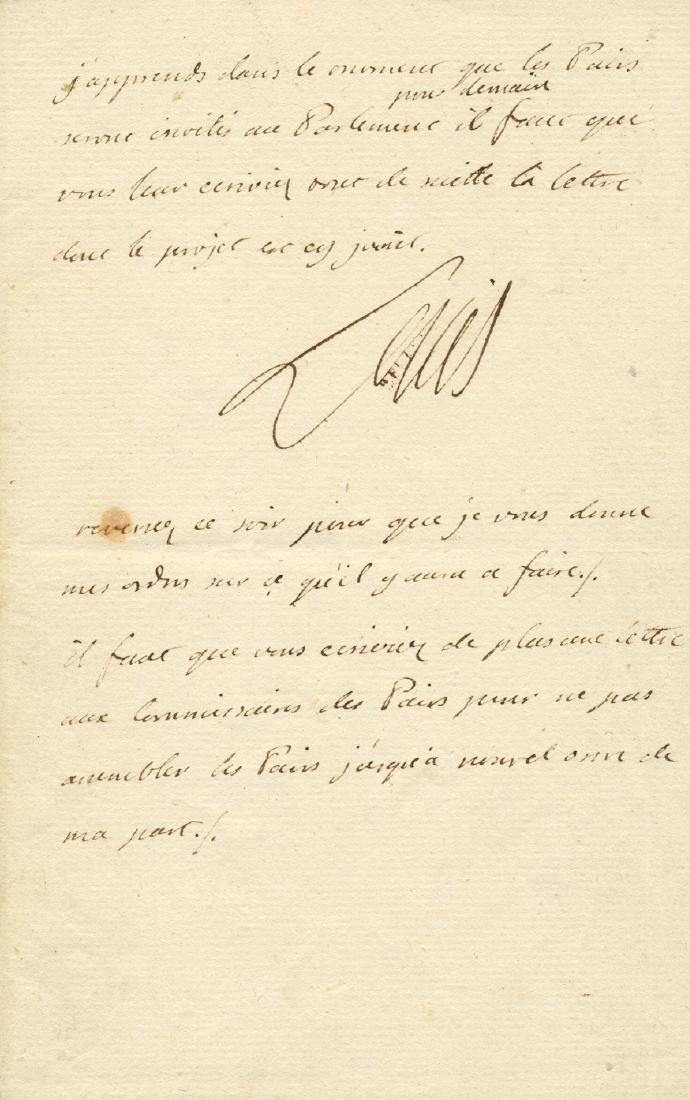 j'apprends dans le moment que les Pairs
pour demain
seront invités au Parlement il faut que
vous leur ecriviez tout de suitte la lettre
dont le projet est cy joint.
Louis
revenez ce soir pour que je vous donne
mes ordres sur ce qu'il y aura a faire./.
il faut que vous ecriviez de plus une lettre
aux Commissaires des Pairs pour ne pas
assembler les Pairs jusqu'a nouvel ordre de
ma part./.